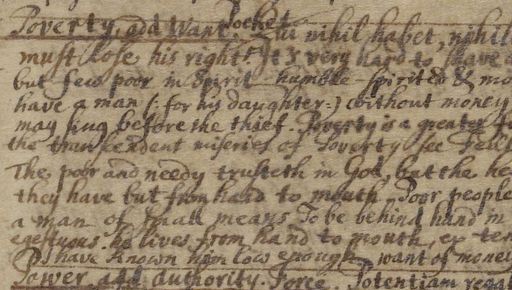 Pocket.
Poverty, add Want. Qui nihil habet, nihil
must lose his right. It is very hard to have a
but few poor in Spirit humble-spirited & mo
have a man (: for his daughter :) without money
may sing before the thief. Poverty is a greater
the transcendent miseries of Poverty see Fell
The poor and needy trusteth in God, but the he
they have but from hand to mouth. Poor people
a man of small means. To be behind hand in
egestuous. he lives from hand to mouth, ex tem
I have known him low enough. want of money
Power, add authority. Force. Potentiam rega